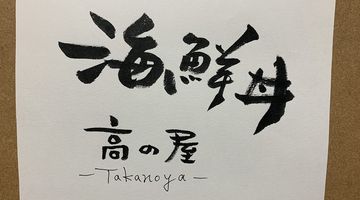 海鮮丼
高の屋
-Takanoya-